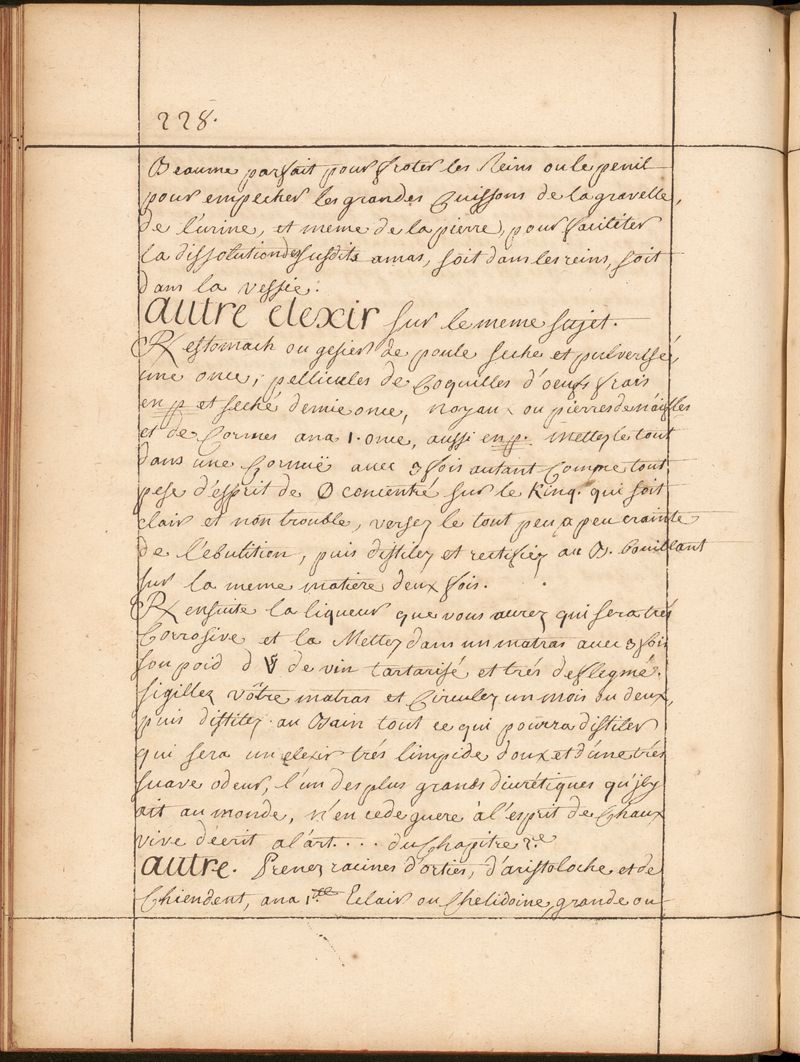 228.
Beaume parfait pour froter les Reins ou le penil
pour empecher les grandes Cuissons de la gravelle,
de l'urine, et meme de la pierre, pour faciliter
la dissolution des susdits amas, soit dans les reins, soit
dans la vessie.
autre elexir sur le meme sujet.
℞ estomach ou gesier de poule seche et pulverisé,
une once, pellicules de Coquilles d'oeufs frais
en p et seché demie once, noyaux ou pierres de néiffles
et de Cormes ana 1. once, aussi en p. Mettez le tout
dans une Cornuë avec 3 fois autant Comme tout
pese d'esprit de concentré sur le King. qui soit
clair et non trouble, versez le tout peu a peu crainte
de l'ébulition, puis distilez et rectifiez au B. bouillant
sur la meme matiere deux fois.
℞ ensuite la liqueur que vous aurez qui sera trés
Corrosive et la Mettez dans un matras avec 3 fois
son poid d de vin tartarisé et trés deflegmé.
sigillez vôtre matras et Circulez un mois ou deux,
puis distilez au Bain tout ce qui pourra distiler
qui sera un elexir trés limpide doux et d'une trés
suave odeur, l'un des plus grands diurétiques qu'il y
ait au monde, n'en cede guere à l'esprit de Chaux
vive décrit a l'art. . . . du Chapitre 2.e
autre. Prenez racines d'orties, d'aristoloche et de
Chiendent, ana 1 Eclair ou Chelidoine, grande ou